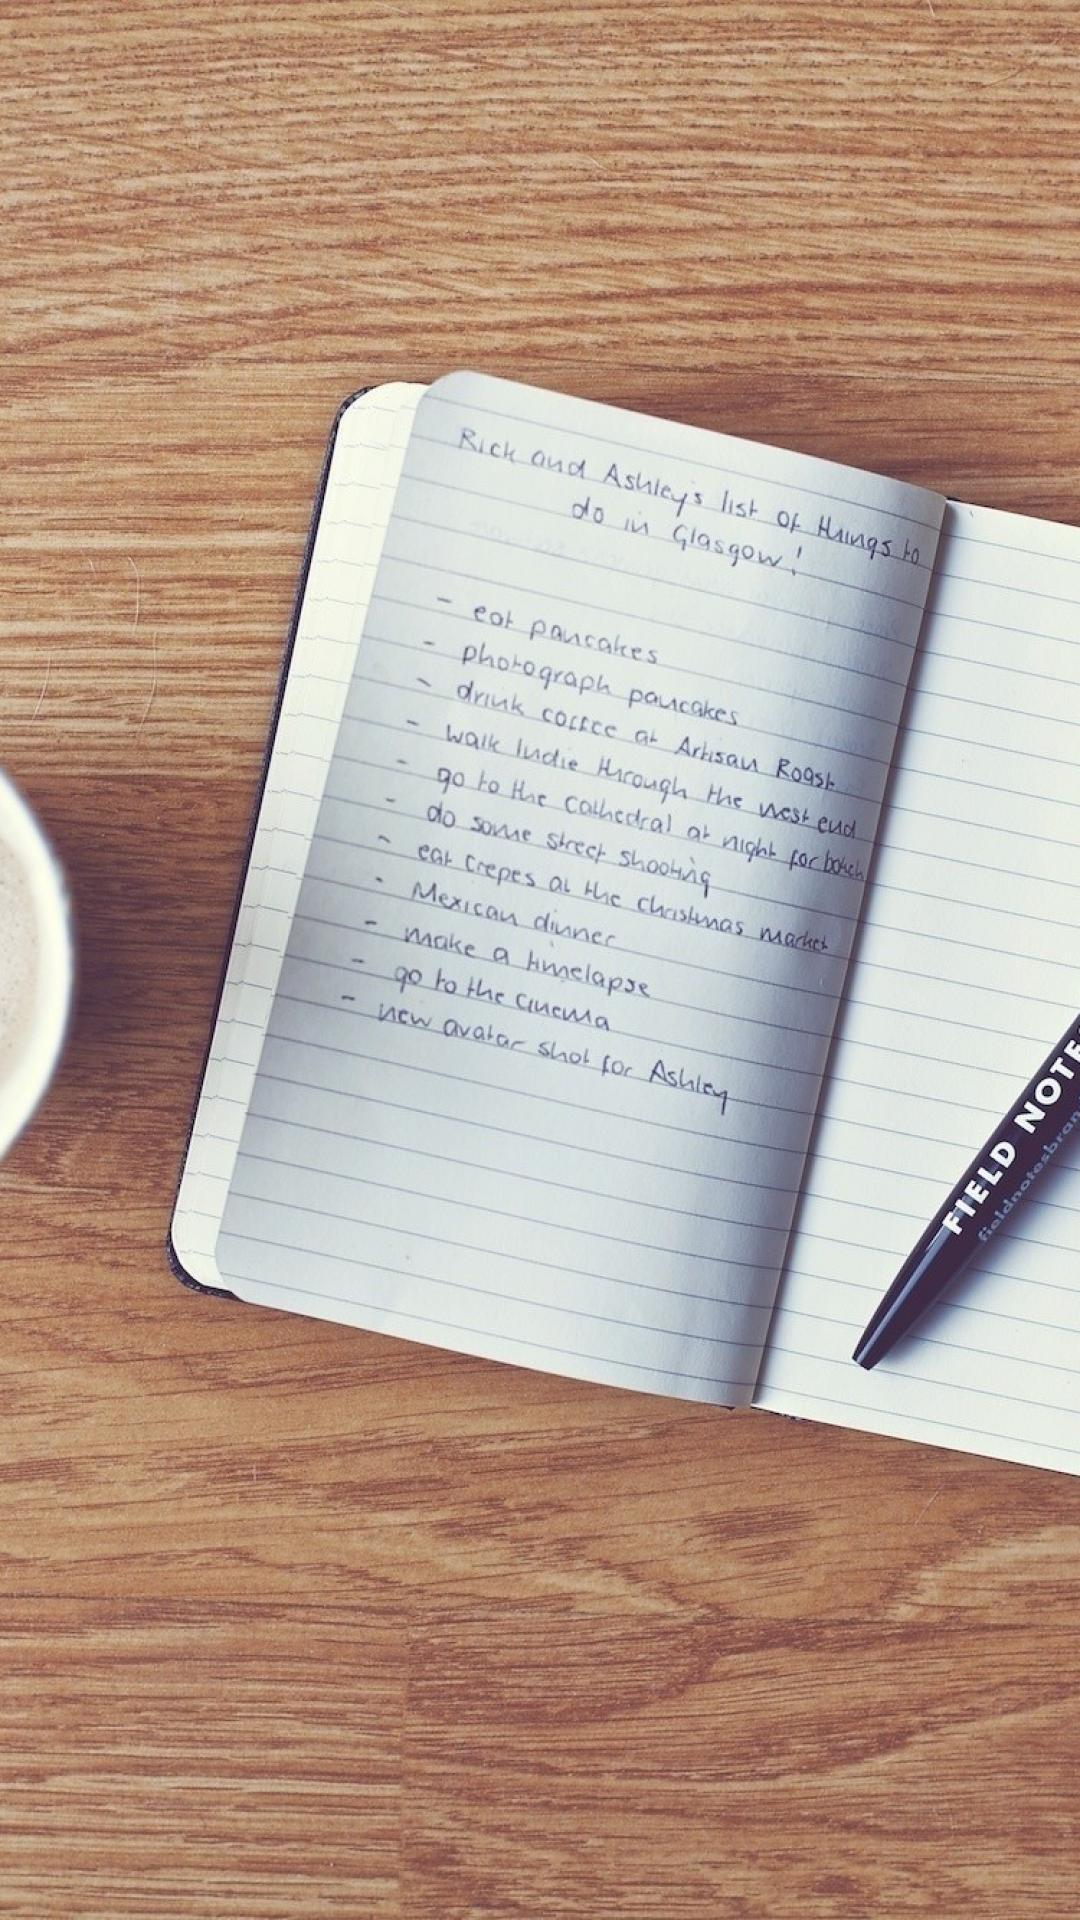 Rick and Ashley's list of things to
do in Glasgow!
- eat pancakes
- photograph pancakes
- drink coffee at Artisan Roast
- walk Indie through the west end
- go to the cathedral at night for bokeh
- do some street shooting
- eat crepes at the christmas market
- Mexican dinner
- make a timelapse
- go to the cinema
- new avatar shot for Ashley
FIELD NOTES
fieldnotesbran